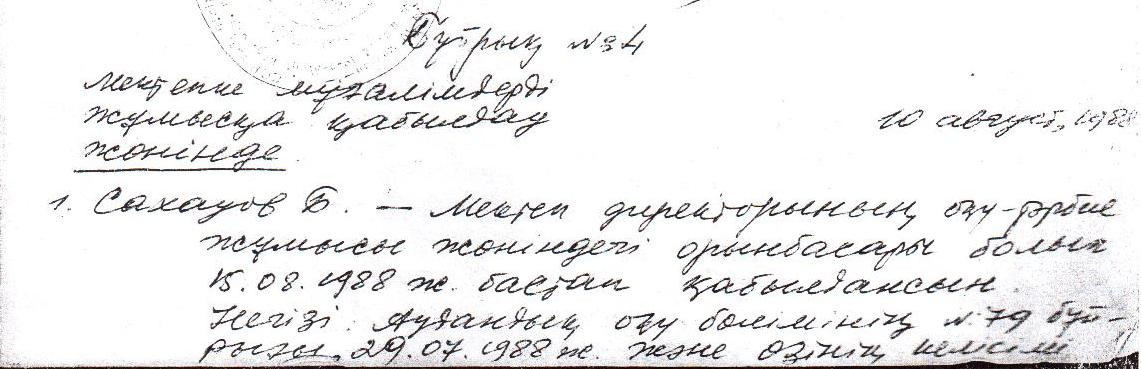 Бұйрық №34
Мектепке мұғалімдерді
жұмысқа қабылдау
10 август, 1988
жөнінде
1. Сахауов Б. — Мектеп директорының оқу-тәрбие
жұмысы жөніндегі орынбасары болып
15.08.1988 ж. бастап қабылдансын.
Негізі: Аудандық оқу бөлімінің №79 бұй-
рығы, 29.07.1988 ж. және өзінің келісімі